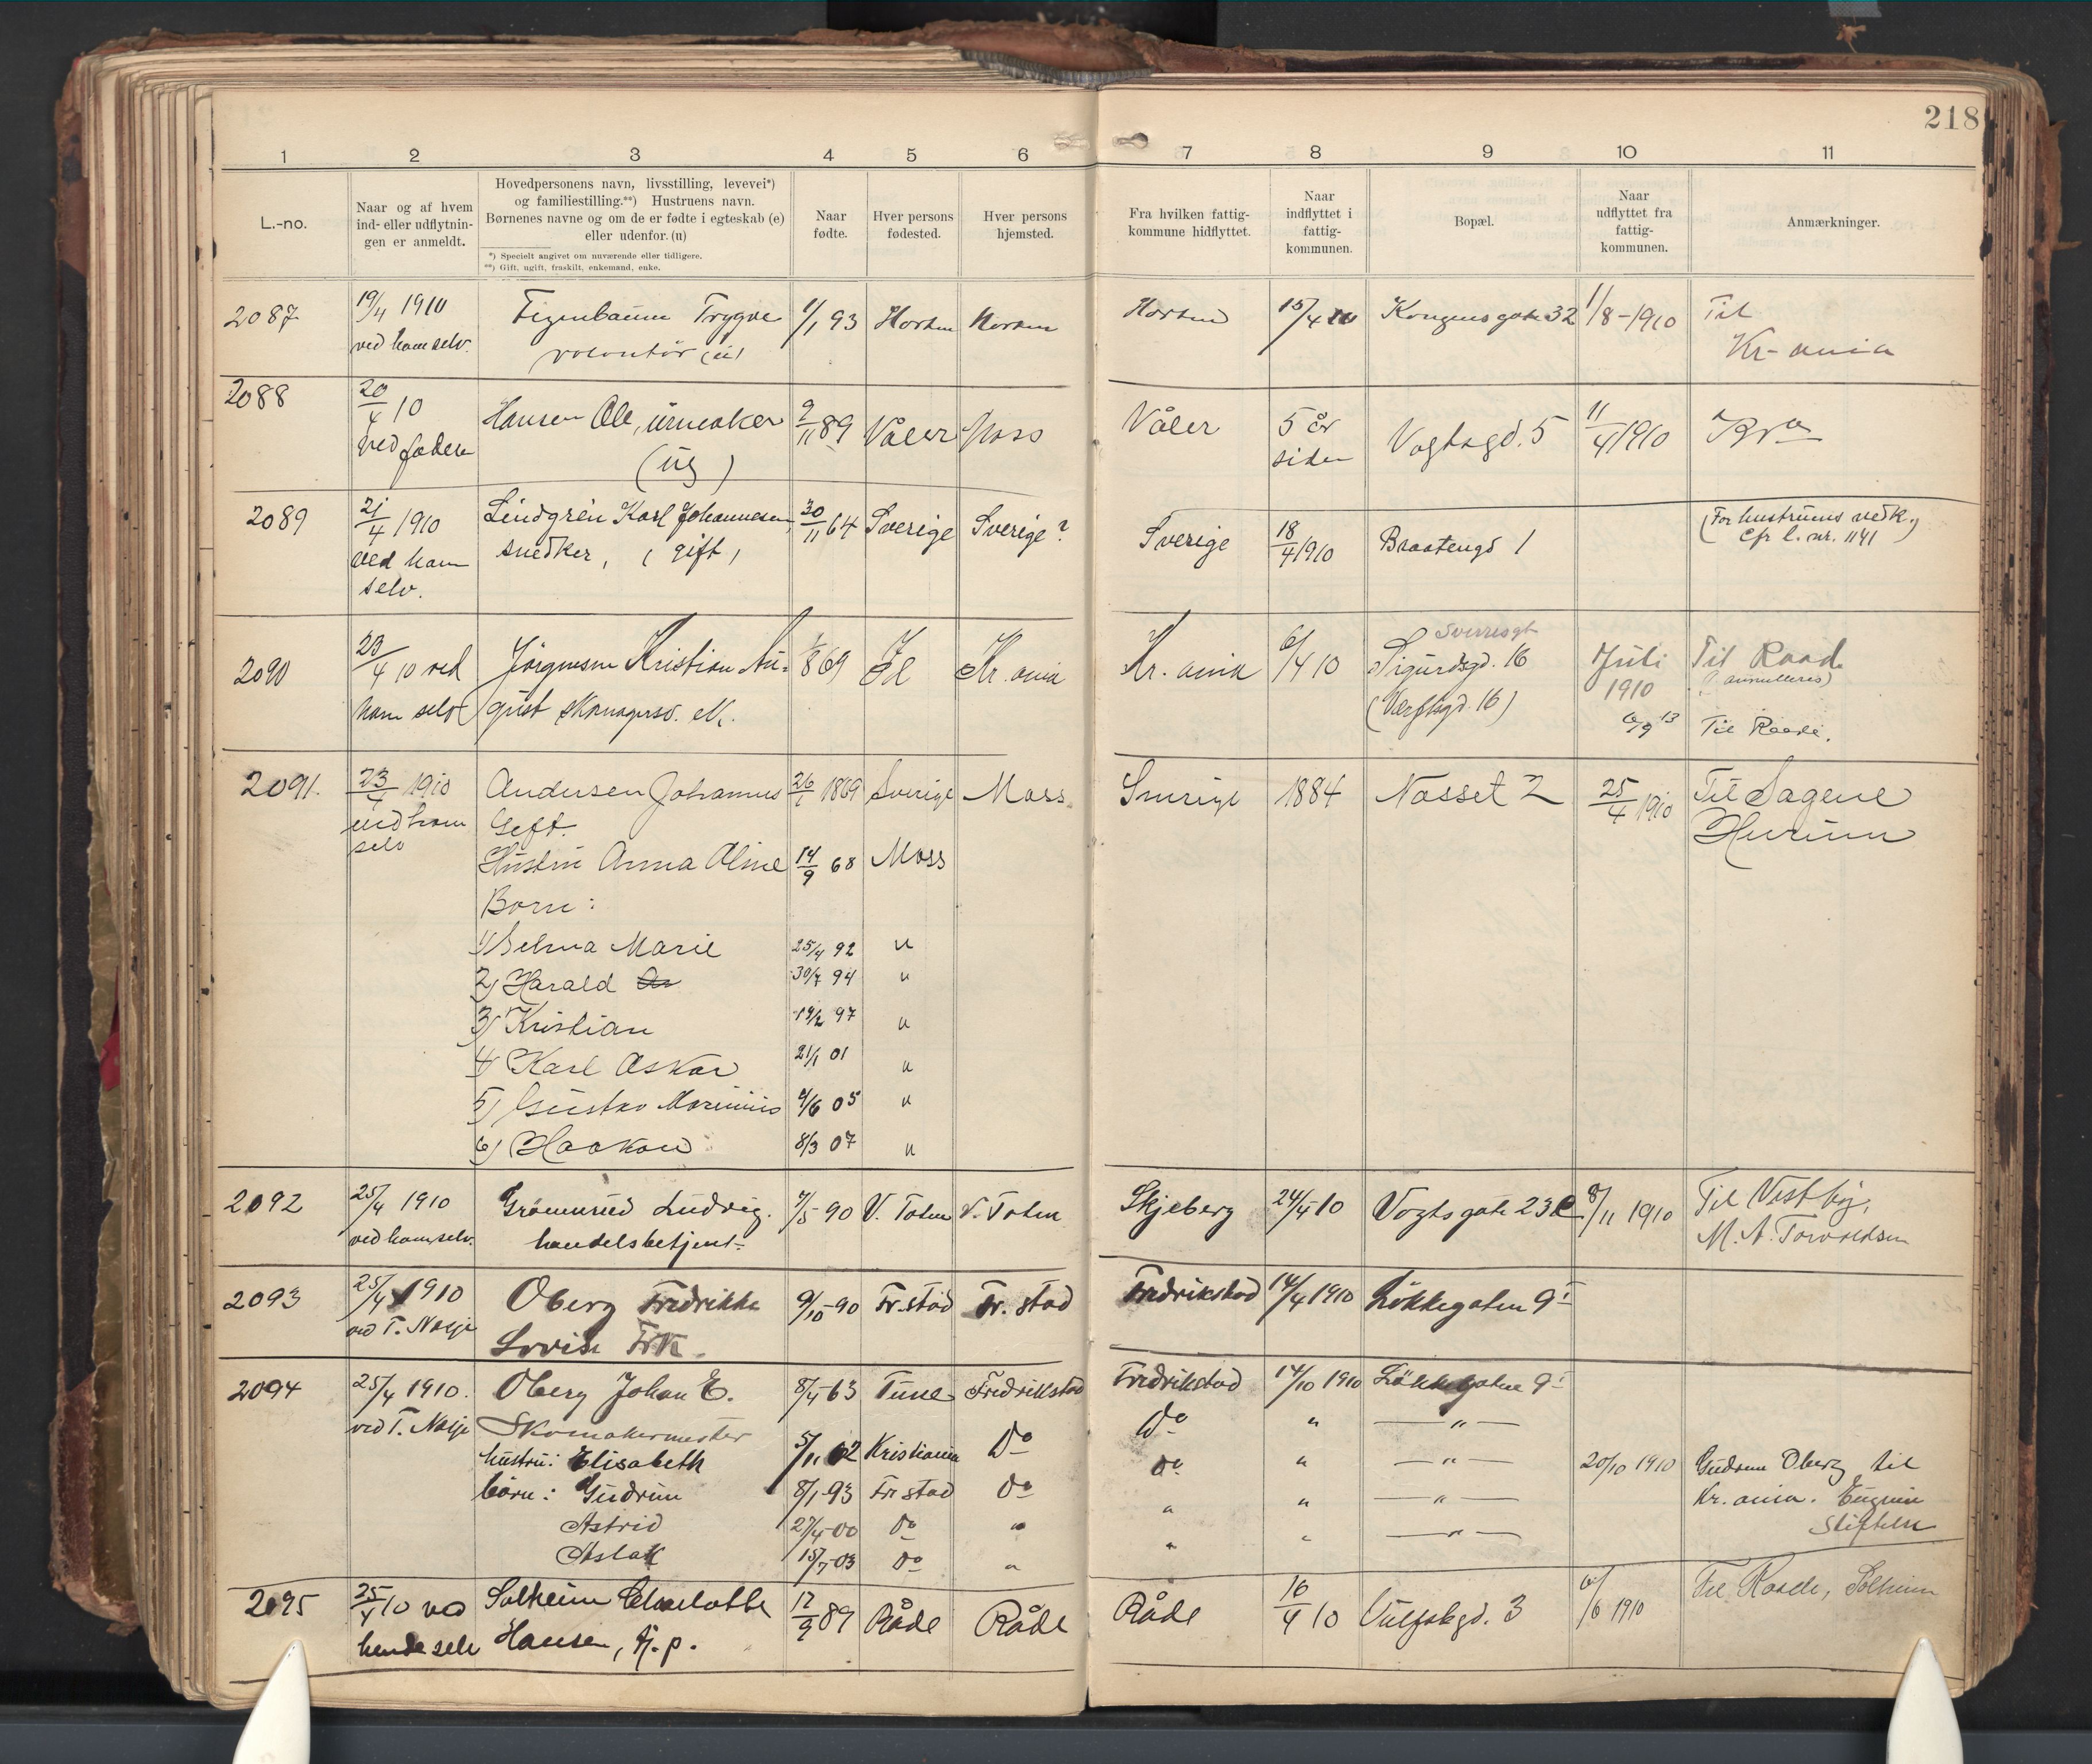 218
1 2 3 4 5 6 7 8 9 10 11
L.-no.
Naar og af hvem
ind- eller udflytnin-
gen er anmeldt.
Hovedpersonens navn, livsstilling, levevei*)
og familiestilling.**) Hustruens navn.
Børnenes navne og om de er fødte i egteskab (e)
eller udenfor. (u)
*) Specielt angivet om nuværende eller tidligere.
**) Gift, ugift, fraskilt, enkemand, enke.
Naar
fødte.
Hver persons
fødested.
Hver persons
hjemsted.
Fra hvilken fattig-
kommune hidflyttet.
Naar
indflyttet i
fattig-
kommunen.
Bopæl.
Naar
udflyttet fra
fattig-
kommunen.
Anmærkninger.
2087 19/4 1910 Trygve 1/1 93 Horten Horten Horten 15/4 Kongensgate 32 1/8-1910 Til
ved ham selv. volontør (u) Kr-ania
2088 20/4 10 Hansen Ole, urmaker 9/11 89 Våler Moss Våler 5 år Vogtsgd. 5 11/4 1910
ved faderen (ug) siden
2089 21/4 1910 Lindgren Karl Johannesen, 30/11 64 Sverige Sverige? Sverige 18/4 1910 Braatengd 1 (For hustruens vedk.
ved ham snedker, (gift) Cfr l. nr. 1141
selv.
2090 23/4 10 ved Jørgensen Kristian Au- 1/8 69 Id Kr. ania Kr. ania 6/4 10 Sverresgt Sigurdsgd. 16 Juli Til Raade
ham selv gust (Værftsgd. 16) 1910 (annulleres)
6/9 13 Til Raade.
2091. 23/4 1910 Andersen Johannes 26/1 1869 Sverige Moss Sverige 1884 Nosset 2 25/4 1910 Til Sagene
ved ham Gift. Hurum
selv
Hustru Anna Oline 14/9 68 Moss
Børn:
1) Selma Marie 25/4 92 "
2) Harald 30/7 94 "
3) Kristian 19/2 97 "
4) Karl Oskar 21/1 01 "
5) Gustav Marinius 4/6 05 "
6) Haakon 8/3 07 "
2092 25/4 1910 Ludvig. 7/5-90 V. Toten V. Toten Skjeberg 24/4-10 Vogtsgate 23 8/11 1910 Til Vestby,
ved ham selv. handelsbetjent- M. A. Torvaldsen
2093 25/4 1910 Oberg Fredrikke 9/10-90 Fr.stad Fr. stad Fredrikstad 14/4 1910 Løkkegaten 9 I
ved T. Lovise Frk.
2094 25/4 1910. Oberg Johan E. 8/4-63 Tune Fredrikstad Fredrikstad 14/10 1910 Løkkegaten 9 I
ved T. Skomakermester Do " — " —
hustru: Elisabeth 5/11 62 Kristiania Do Do " — " — 20/10 1910 Gudrun Oberg til
børn: Gudrun 8/1-93 Fr stad Do " " — " — Kr. ania. Eugenie
Astrid 27/4-00 Do " " " — " — Stiftelse
Aslak 15/7-03 Do "
2095 25/4 10 ved Solheim Charlotte 12/9 89 Råde Råde Råde 16/4 10 3 6/6 1910 Til Raade, Solheim
hende selv Hansen, tj. p.